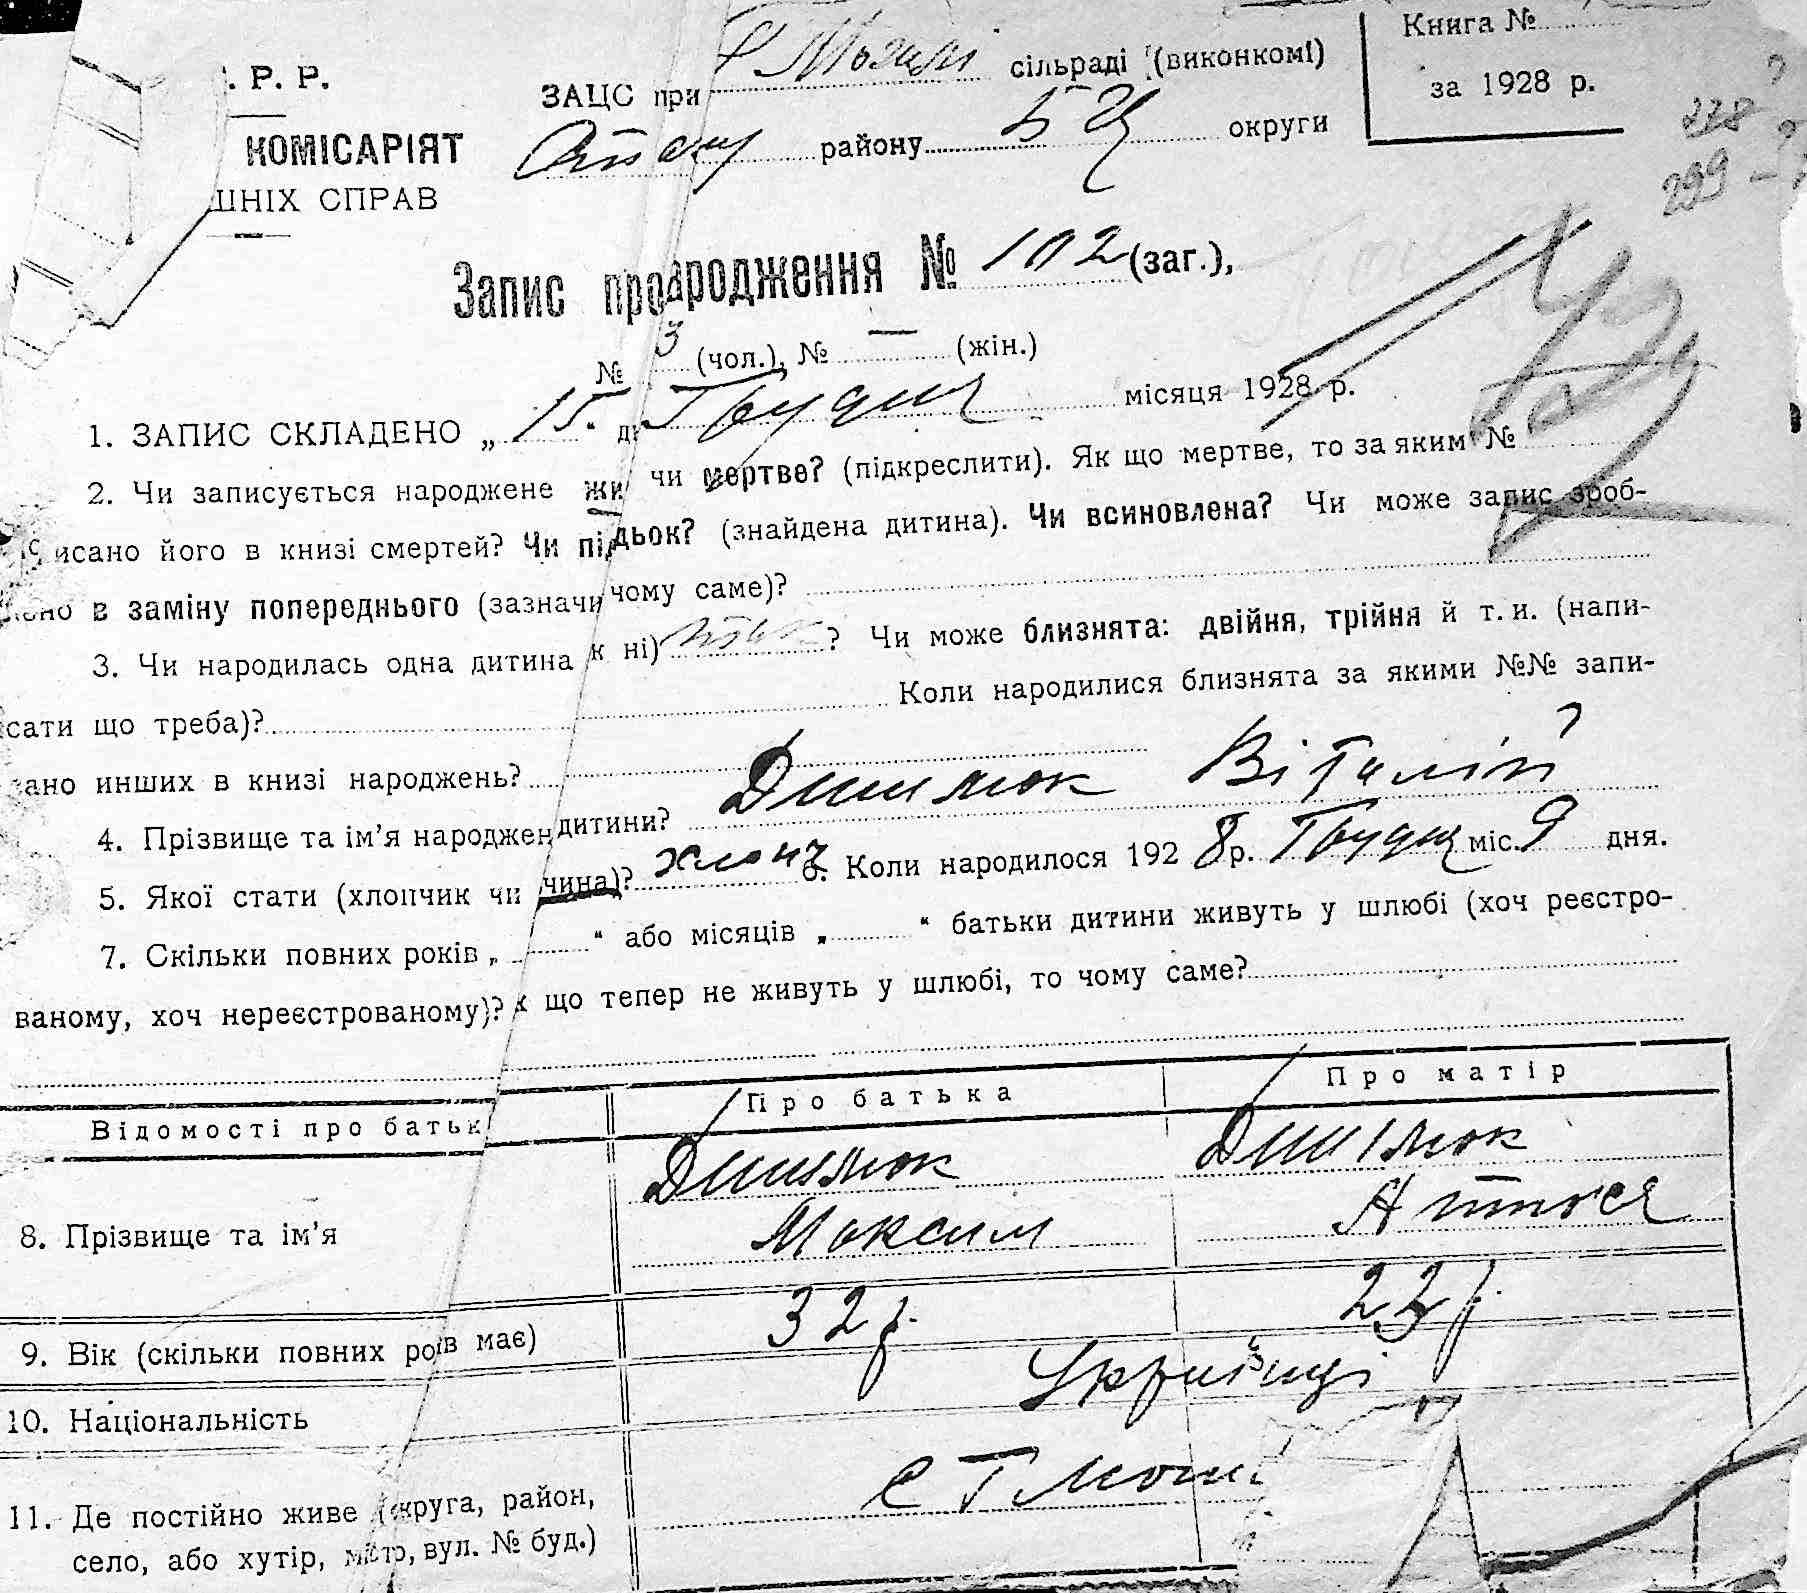 Книга №
. Р. Р.
ЗАЦС при сільраді (виконкомі)
за 1928 р.
КОМІСАРІЯТ
району БЦ округи
ШНІХ СПРАВ
278 ?
299 – ?
Запис про ародження № 102 (заг.),
№ 3 (чол.), № — (жін.)
1. ЗАПИС СКЛАДЕНО „ 15 “ д Грудня місяця 1928 р.
2. Чи записується народжене жи чи мертве? (підкреслити). Як що мертве, то за яким №
исано його в книзі смертей? Чи під дьок? (знайдена дитина). Чи всиновлена? Чи може запис зроб-
ено в заміну попереднього (зазначи чому саме)?
3. Чи народилась одна дитина к ні) ? Чи може близнята: двійня, трійня й т. и. (напи-
сати що треба)? Коли народилися близнята за якими №№ запи-
сано инших в книзі народжень?
4. Прізвище та ім’я народжен дитини? Віталій
5. Якої стати (хлопчик чи чина)? хлопч 6. Коли народилося 192 8 р. Грудня міс. 9 дня.
7. Скільки повних років „ “ або місяців „ “ батьки дитини живуть у шлюбі (хоч реєстро-
ваному, хоч нереєстрованому)? к що тепер не живуть у шлюбі, то чому саме?
Відомості про батьк Про батька Про матір
8. Прізвище та ім’я
Максим
9. Вік (скільки повних ро ів має) 32 р. 22 р.
10. Національність Українці
11. Де постійно живе (округа, район,
село, або хутір, місто, вул. № буд.)